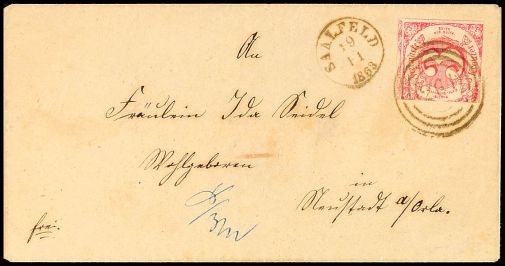 SAALFELD
19
11
1863
An
Fräulein Ida Seidel
Wohlgeboren
in
Neustadt a/Orla.
frei.